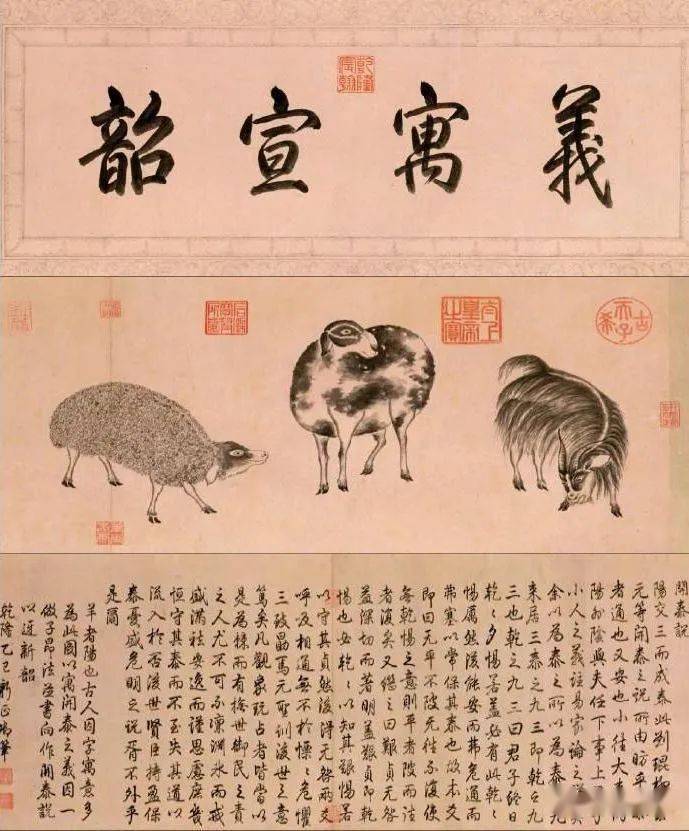 義寓宣韶
乾隆宸翰
古稀天子
太上皇帝之寶
開泰說
陽交三而成泰此劉琨柳宗
元等開泰之說所由昉乎泰
者通也又安也小往大來內
陽外陰與夫任下事上君子
小人之義註易家論之詳矣
余以為泰之所以為泰九
來居三泰之九三即乾之九
三也乾之九三曰君子終日
乾乾夕惕若蓋必有此乾乾
惕厲然後能安而弗危通而
弗塞以常保其泰也故本爻
即曰无平不陂无往不復使
無乾惕之意則平者陂而往
者復矣又繼之曰艱貞无咎
益深切而著明蓋艱貞即乾
惕也安乾乾以知其艱惕若
以守其貞然後得无咎兩爻
呼及相通無不於慄慄危懼
三致勗焉元聖訓後世之意
篤矣凡觀象玩占者皆當以
是為而有撫世御民之責
之人尤不可不凜淵冰而戒
盛滿祛安逸而謹思慮庶幾
恒守其泰而不至失其道以
流入於否後世賢臣持盈保
泰憂盛危明之說胥不外乎
是爾
羊者陽也古人因字寓意多
為此圖以寓開泰之義因一
倣子昂法並書向作開泰說
以迓新韶
乾隆乙巳新正御筆